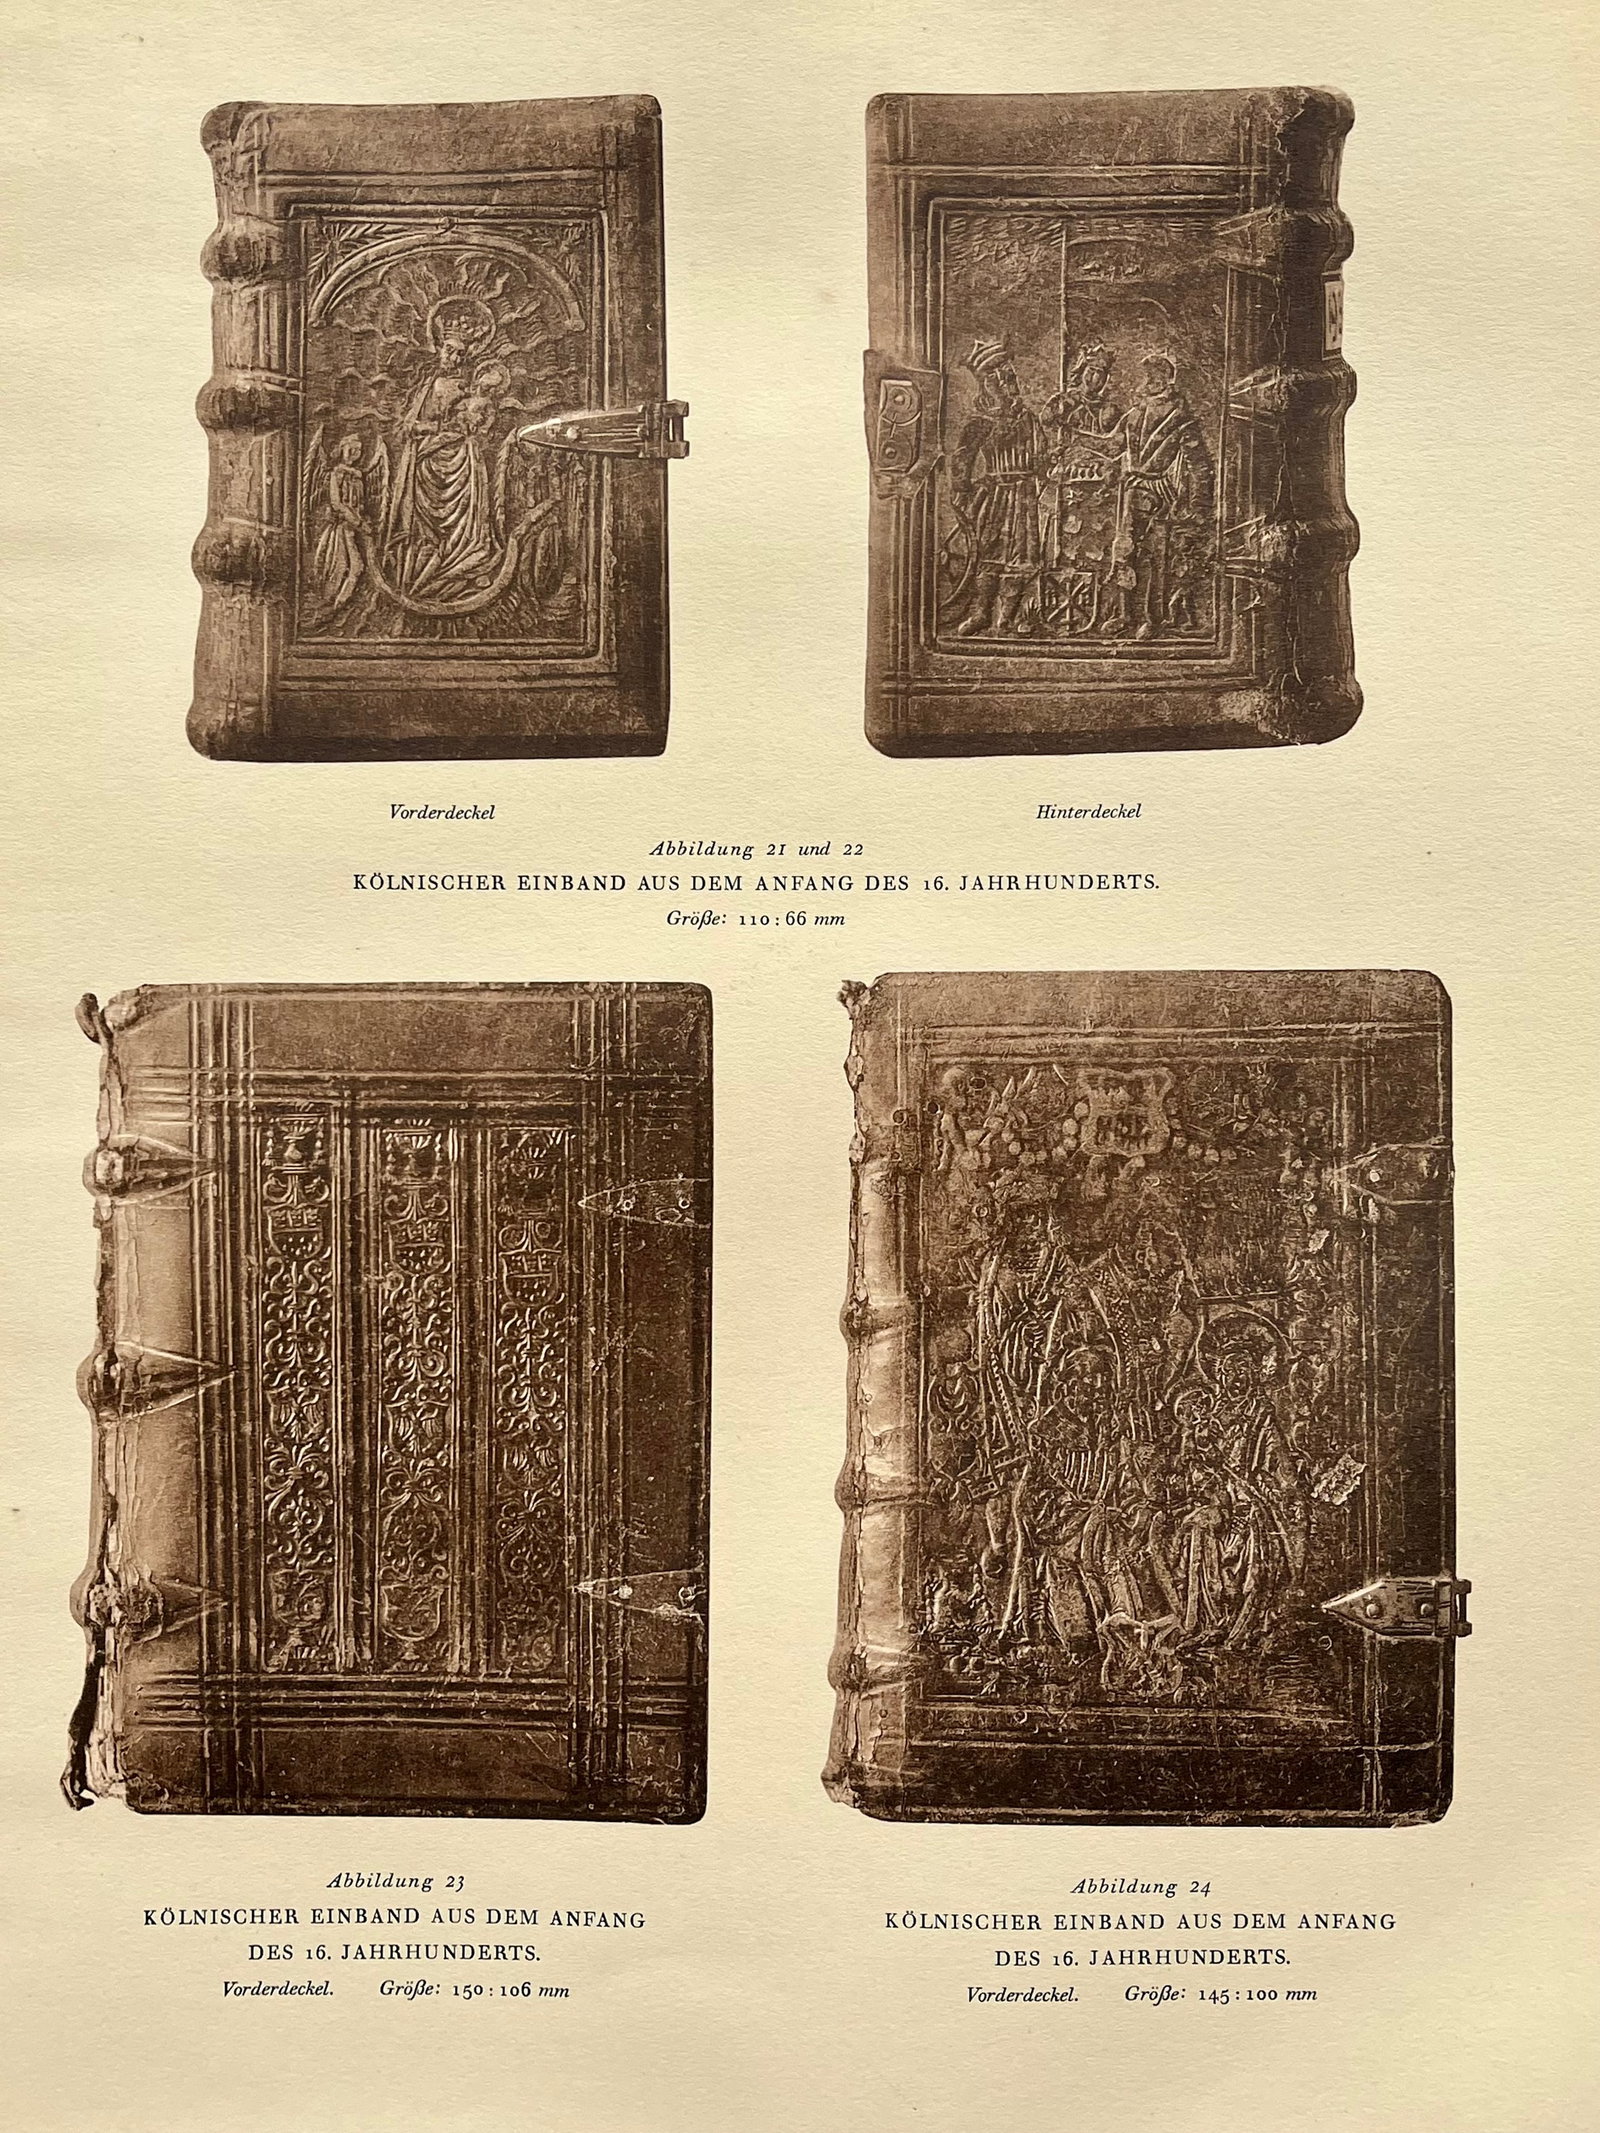 Vorderdeckel
Hinterdeckel
Abbildung 21 und 22
KÖLNISCHER EINBAND AUS DEM ANFANG DES 16. JAHRHUNDERTS.
Größe: 110 : 66 mm
Abbildung 23
KÖLNISCHER EINBAND AUS DEM ANFANG
DES 16. JAHRHUNDERTS.
Vorderdeckel. Größe: 150 : 106 mm
Abbildung 24
KÖLNISCHER EINBAND AUS DEM ANFANG
DES 16. JAHRHUNDERTS.
Vorderdeckel. Größe: 145 : 100 mm